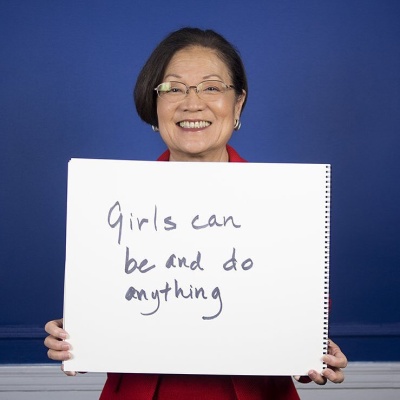 Girls can
be and do
anything